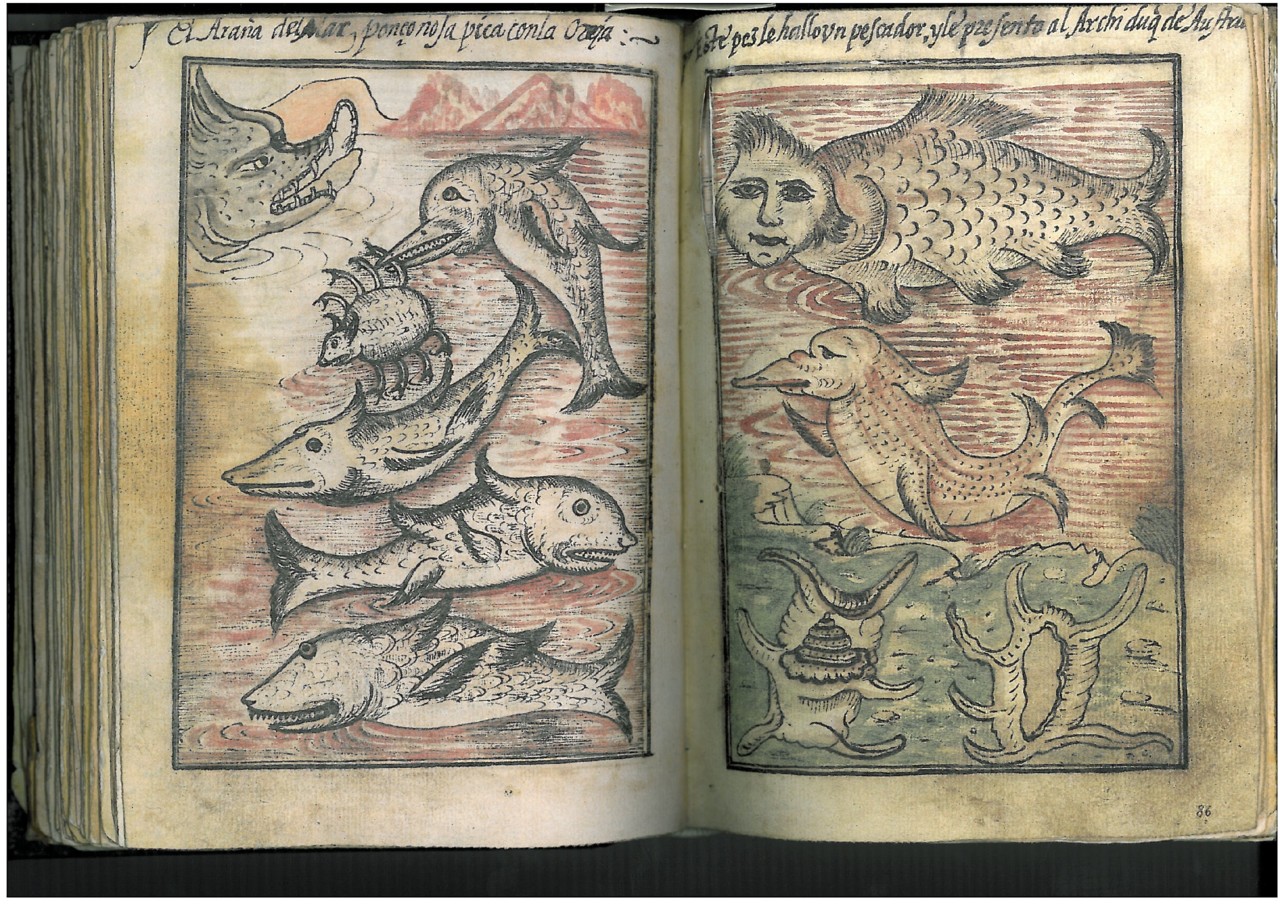 El Araña del Mar, ponçoñosa pica con la Oreja
Este pez le hallo vn pescador, y le presento al Archiduq de Austria
86